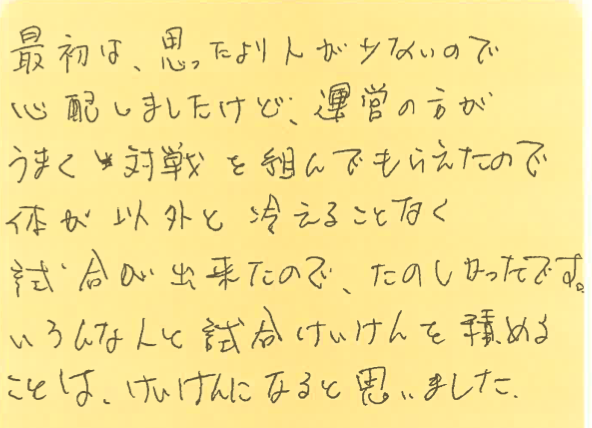 最初は、思ったより人が少ないので
心配しましたけど、運営の方が
うまく対戦を組んでもらえたので
体が以外と冷えることなく
試合が出来たので、たのしかったです。
いろんな人と試合けいけんを積める
ことは、けいけんになると思いました.